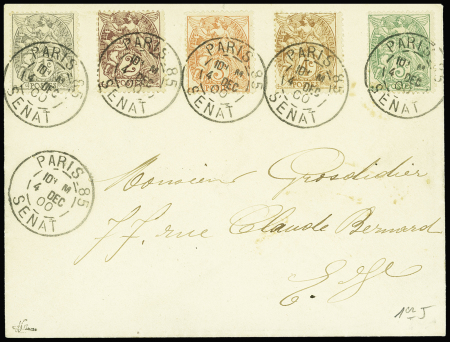 PARIS 85
10 M
14 DEC
00
SENAT
PARIS 85
10 M
14 DEC
00
SENAT
PARIS 85
10 M
14 DEC
00
SENAT
PARIS 85
10 M
14 DEC
00
SENAT
PARIS 85
14 DEC
00
SENAT
PARIS 85
10 M
14 DEC
00
SENAT
Monsieur Grosdidier
77. rue Claude Bernard
E.V.
1er J